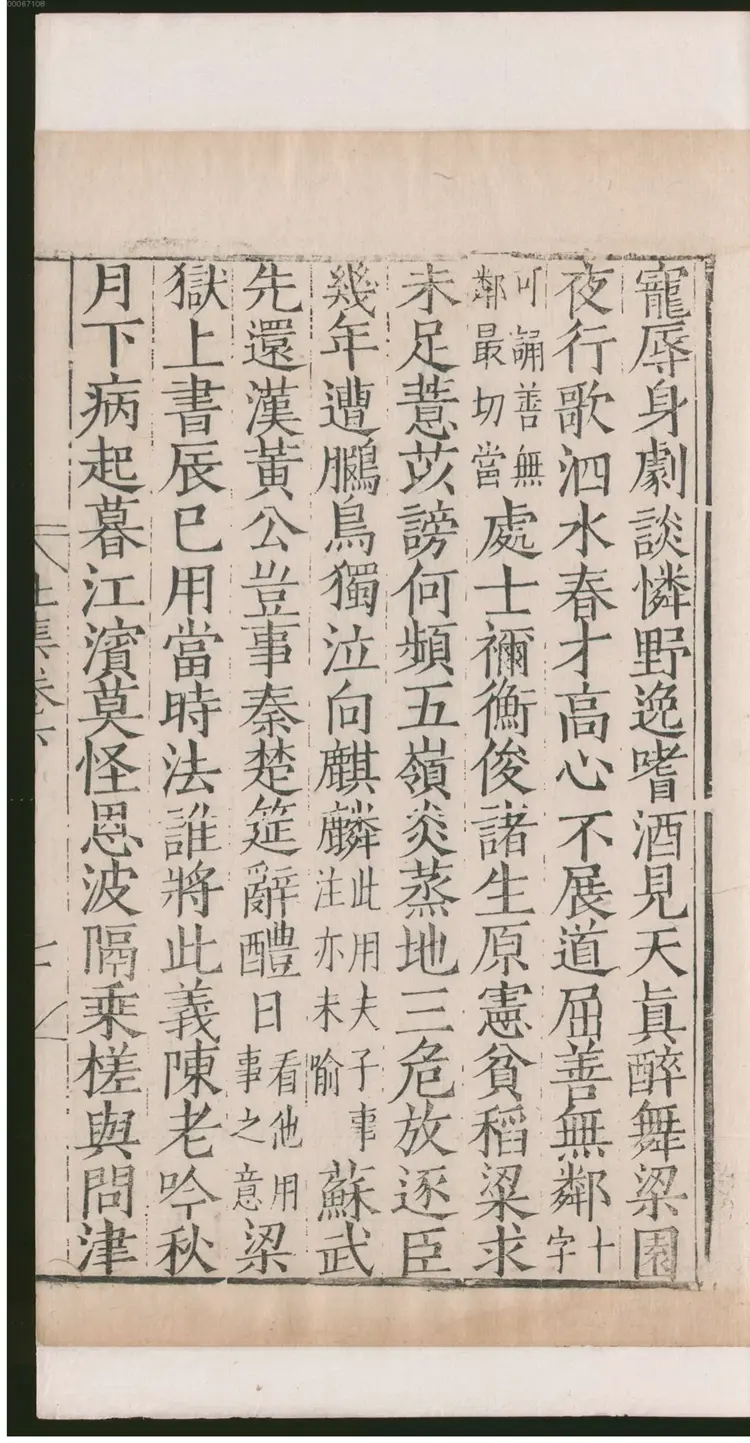 00067108
寵辱身劇談憐野逸嗜酒見天眞醉舞梁園
夜行歌泗水春才高心不展道屈善無鄰十字
可誦善無鄰最切當處士禰衡俊諸生原憲貧稻粱求
未足薏苡謗何頻五嶺炎蒸地三危放逐臣
幾年遭鵩鳥獨泣向麒麟此用夫子事注亦未喻蘇武
先還漢黃公豈事秦楚筵辭醴日看他用事之意梁
獄上書辰已用當時法誰將此義陳老吟秋
月下病起暮江濱莫怪恩波隔乘槎與問津